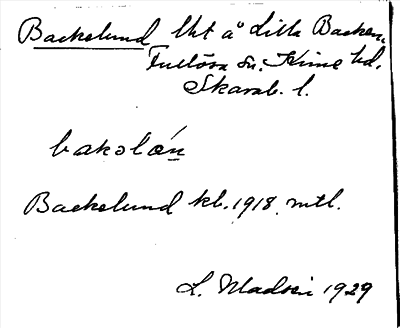 Backelund lht å Lilla Backen.
Fullösa sn. Kinne hd.
Skarab. l.
bakəlœ́n
Backelund kb. 1918 mtl.
L. Madsén 1929